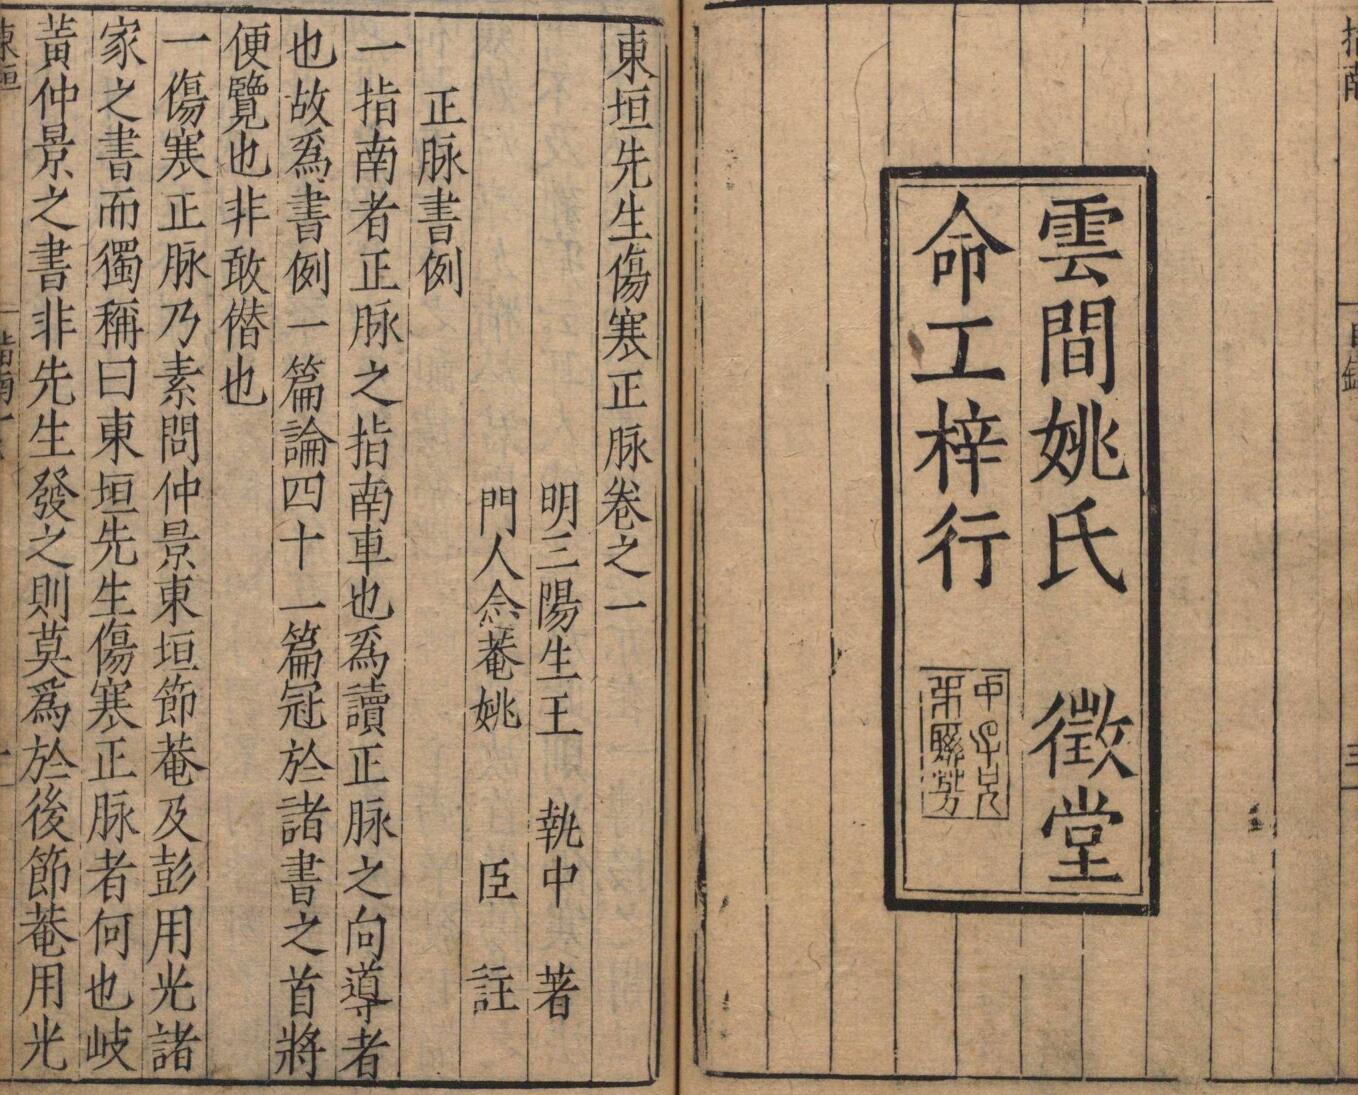 指南
目錄
三
雲間姚氏 徵堂
命工梓行
東垣先生傷寒正脉卷之一
明三陽生王 執中 著
門人𠆩菴姚 臣 註
正脉書例
一指南者正脉之指南車也爲讀正脉之向導者
也故爲書例一篇論四十一篇冠於諸書之首將
便覽也非敢僭也
一傷寒正脉乃素問仲景東垣節菴及彭用光諸
家之書而獨稱曰東垣先生傷寒正脉者何也岐
黃仲景之書非先生發之則莫爲於後節菴用光
東垣